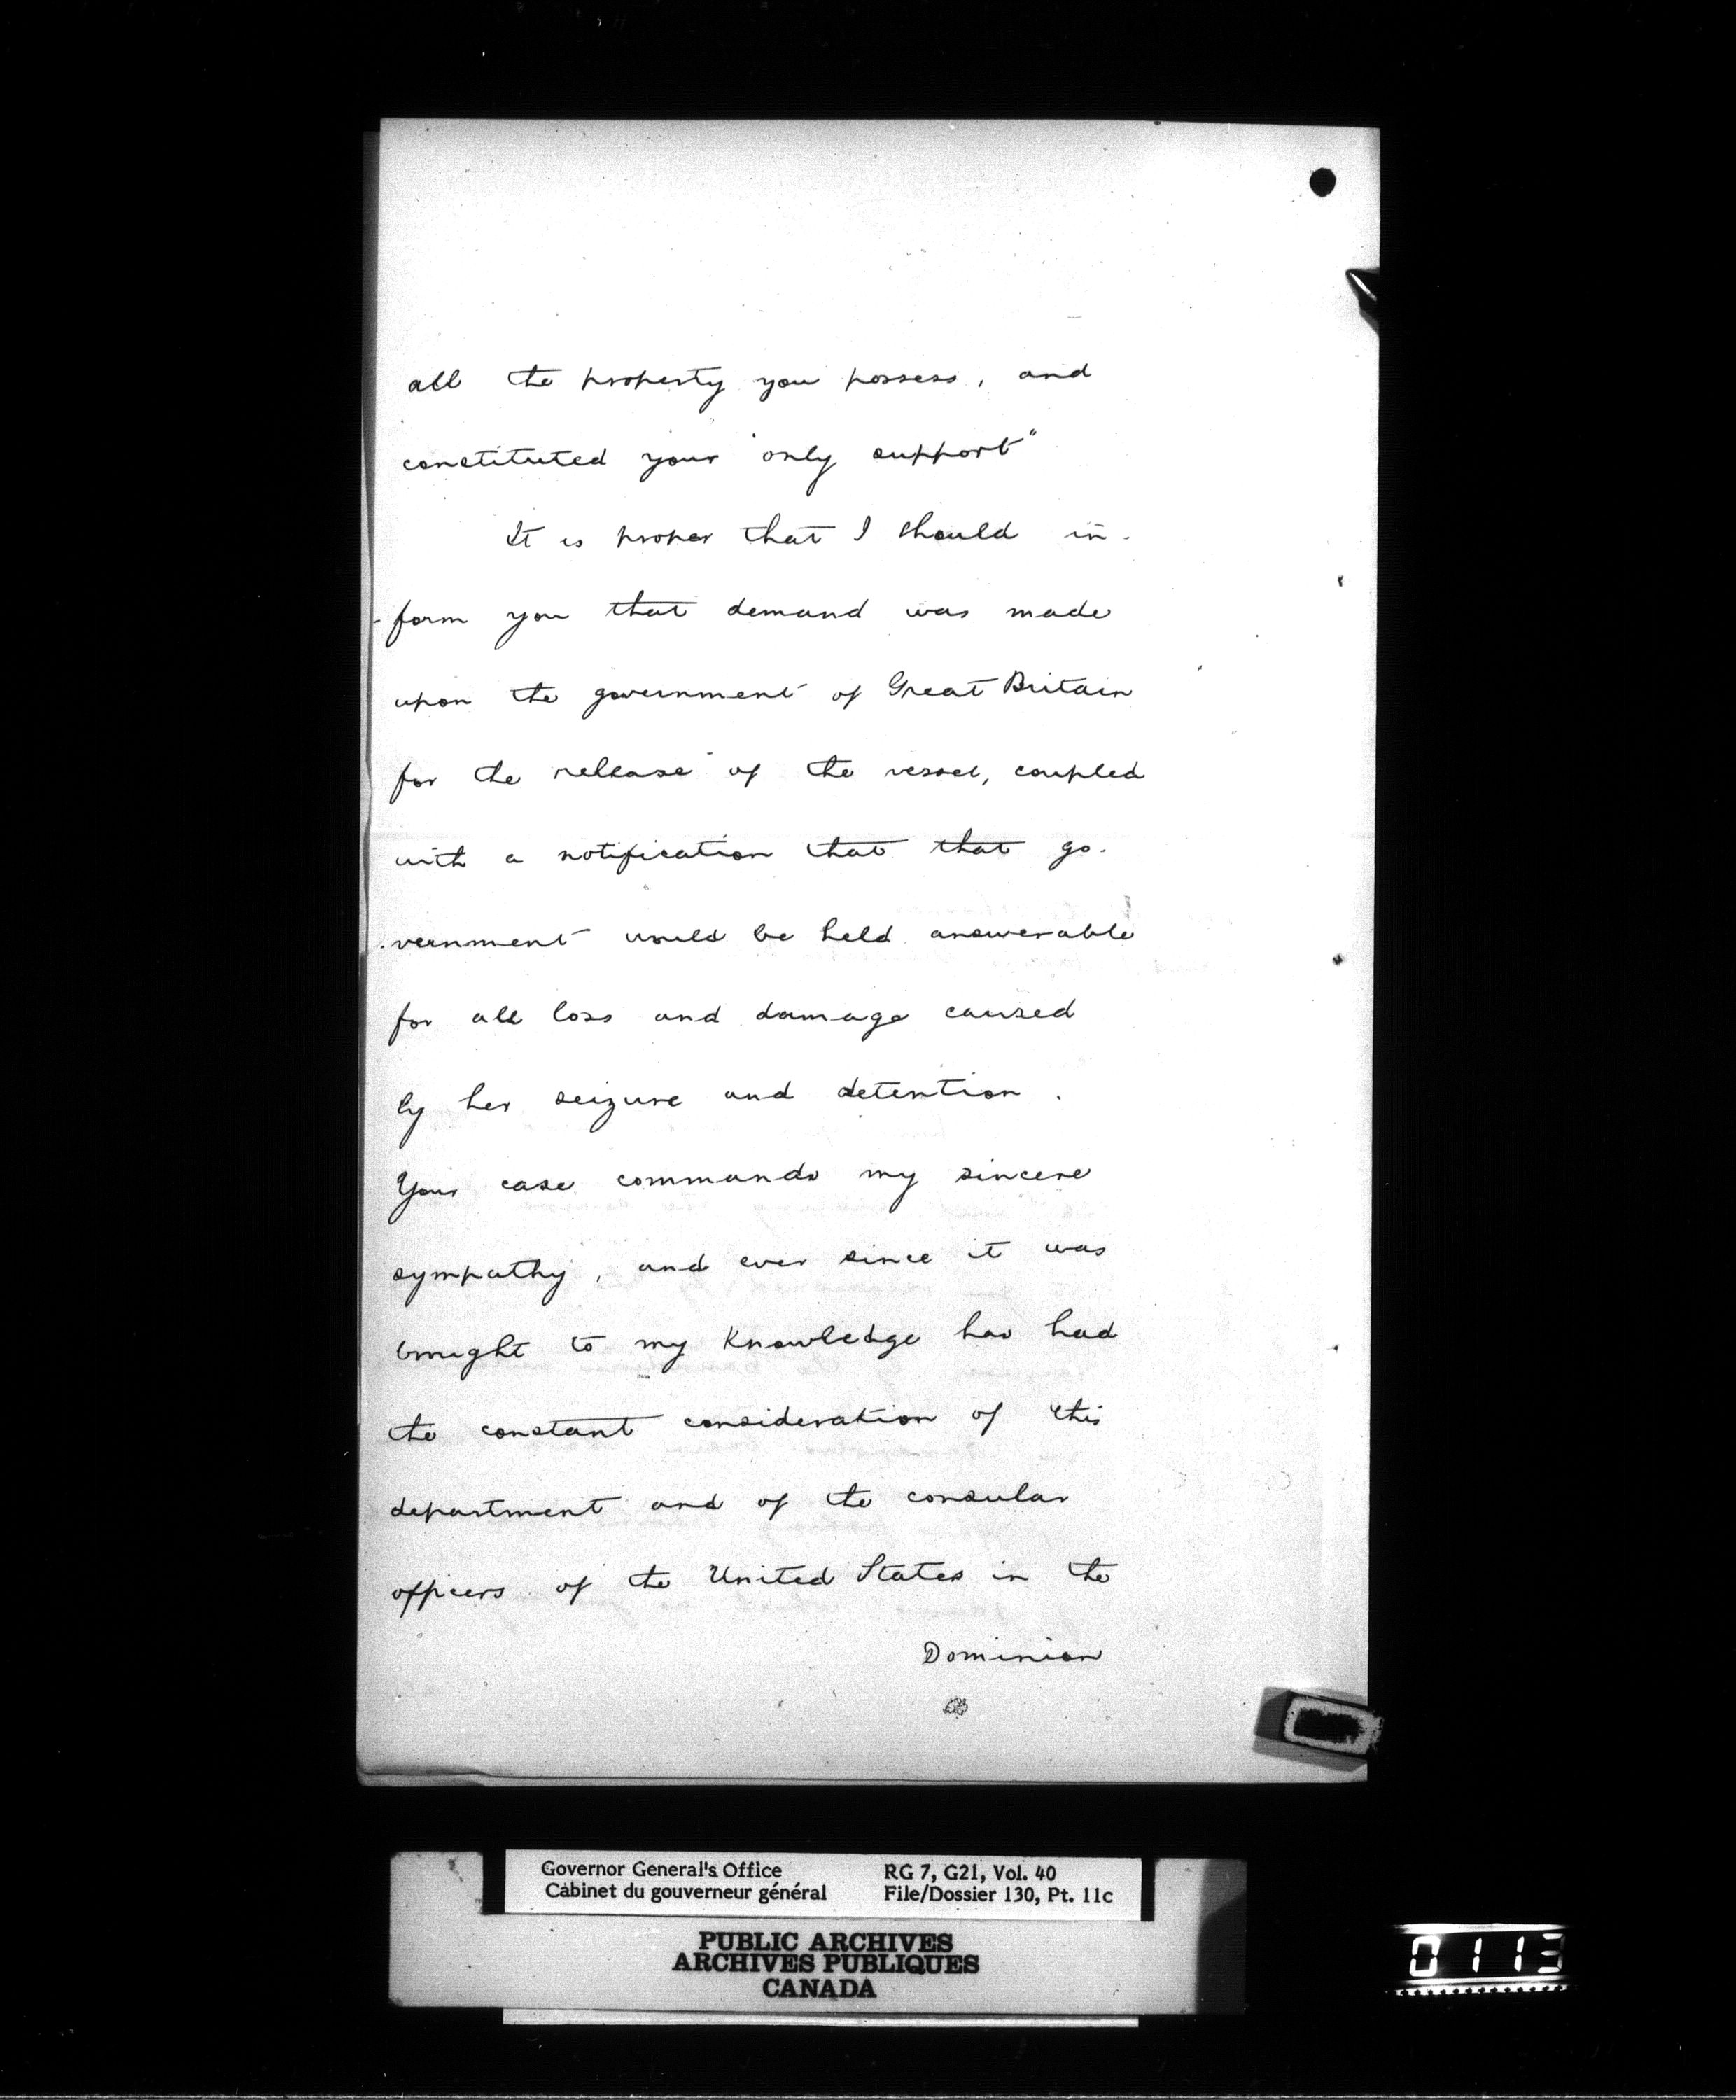 all the property you possess, and
constituted your "only support"
It is proper that I should in-
-form you that demand was made
upon the government of Great Britain
for the release of the vessel, coupled
with a notification that that go-
-vernment would be held answerable
for all loss and damage caused
by her seizure and detention.
Your case commands my sincere
sympathy, and ever since it was
brought to my knowledge has had
the constant consideration of this
department and of the consular
officers of the United States in the
Dominion
Governor General's Office
Cabinet du gouverneur général
RG 7, G21, Vol. 40
File/Dossier 130, Pt. 11c
PUBLIC ARCHIVES
ARCHIVES PUBLIQUES
CANADA
0113